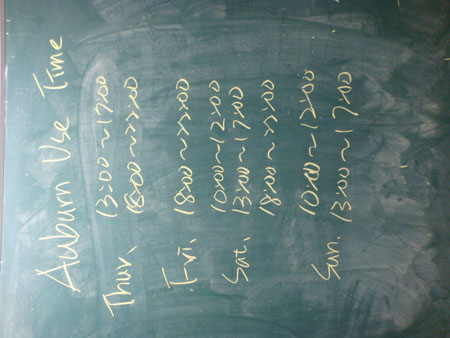 Auburn Use Time
Thur. 13:00~17:00
18:00~22:00
Fri. 18:00~22:00
Sat. 10:00~12:00
13:00~17:00
18:00~22:00
Sun. 10:00~12:00
13:00~17:00